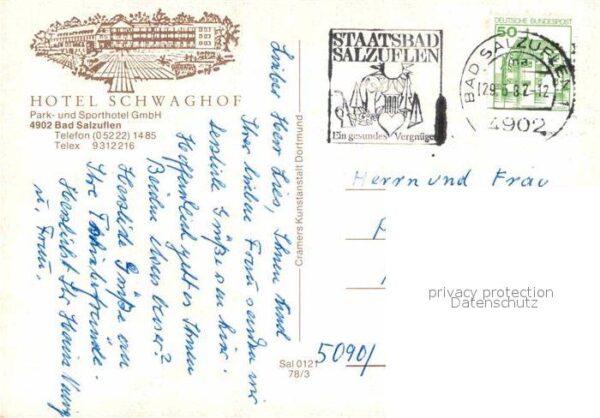 HOTEL SCHWAGHOF
Park- und Sporthotel GmbH
4902 Bad Salzuflen
Telefon (05222) 1485
Telex 9312216
Lieber Herr Lies, Ihnen und
Ihrer lieben Frau senden wir
herzliche Grüße von hier.
Hoffentlich geht es Ihnen
Beiden etwas besser?
Herzliche Grüße an
Ihre
Herzlichst Ihr
u. Frau.
Cramers Kunstanstalt Dortmund
Sal 0121
78/3
STAATSBAD
SALZUFLEN
Ein gesundes Vergnügen
BAD SALZUFLEN 1
ma
4902
DEUTSCHE BUNDESPOST
50
Herrn und Frau
5090/
privacy protection
Datenschutz